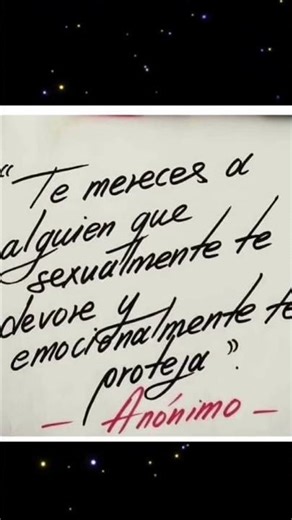 "Te mereces a
alguien que
sexualmente te
devore y
emocionalmente te
proteja".
- Anónimo -